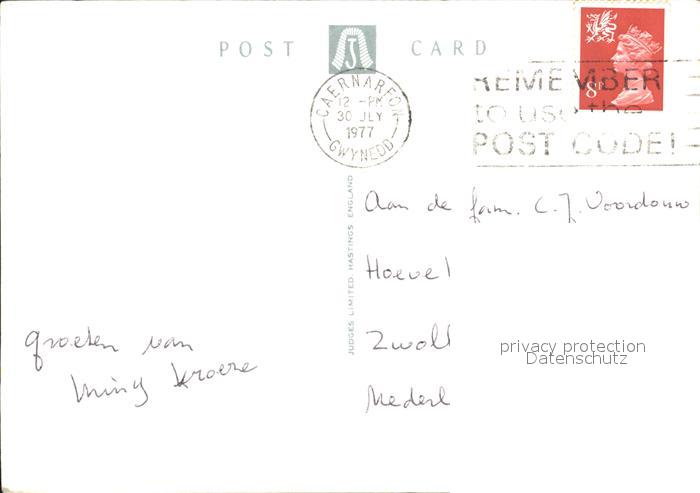 POST CARD
CAERNARFON
12 - PM
30 JLY
1977
GWYNEDD
REMEMBER
to use the
POST CODE!
8P
JUDGES LIMITED, HASTINGS ENGLAND
Aan de fam. C. J. Voordouw
Hoevel
Zwoll
Nederl
groeten van
privacy protection
Datenschutz